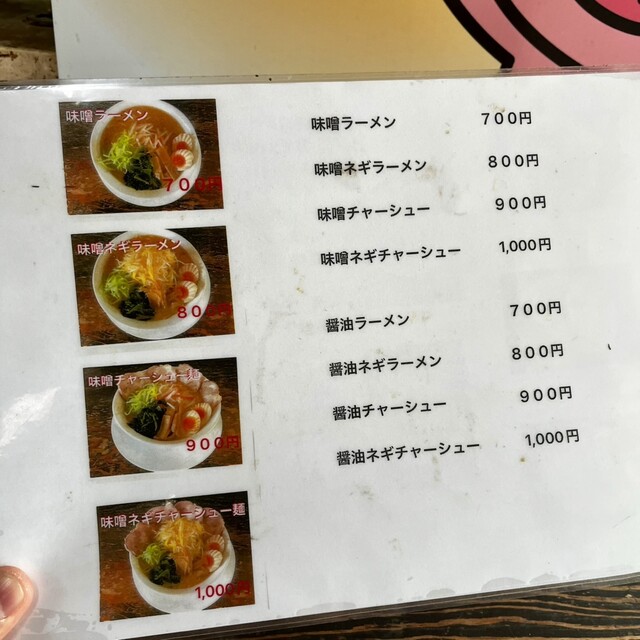 味噌ラーメン
700円
味噌ネギラーメン
800円
味噌チャーシュー麺
900円
味噌ネギチャーシュー麺
1,000円
味噌ラーメン 700円
味噌ネギラーメン 800円
味噌チャーシュー 900円
味噌ネギチャーシュー 1,000円
醤油ラーメン 700円
醤油ネギラーメン 800円
醤油チャーシュー 900円
醤油ネギチャーシュー 1,000円